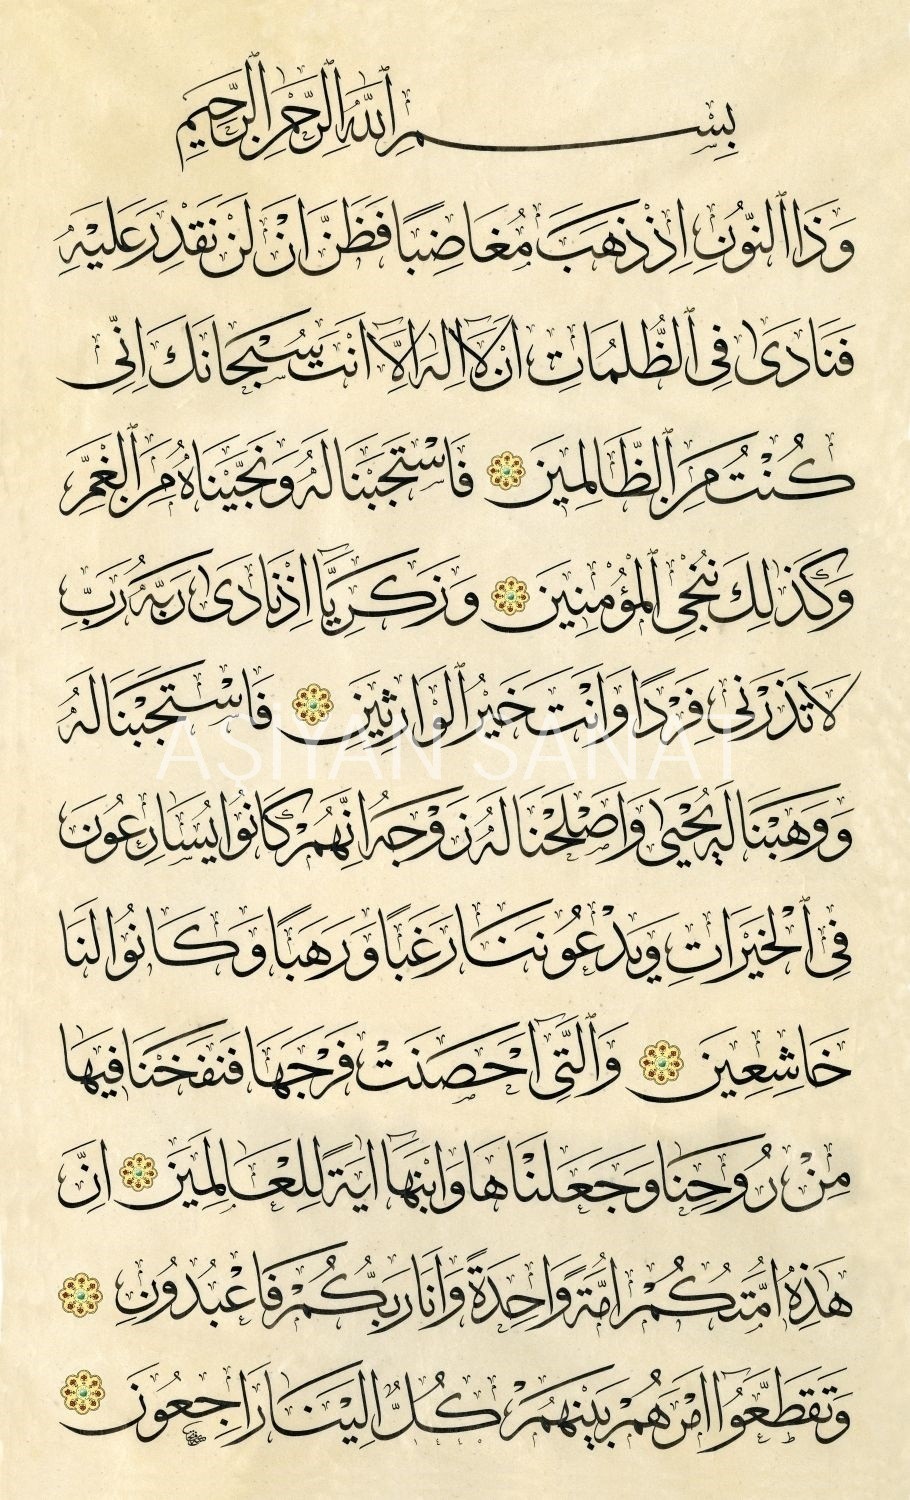 بِسْمِ ٱللّٰهِ ٱلرَّحْمٰنِ ٱلرَّحِيمِ
وَذَا ٱلنُّونِ اِذْ ذَهَبَ مُغَاضِبًا فَظَنَّ اَنْ لَنْ نَقْدِرَ عَلَيْهِ
فَنَادٰى فِى ٱلظُّلُمَاتِ اَنْ لَٓا اِلٰهَ اِلَّٓا اَنْتَ سُبْحَانَكَ اِنِّى
كُنْتُ مِنَ ٱلظَّالِمِينَ فَاسْتَجَبْنَا لَهُ وَنَجَّيْنَاهُ مِنَ ٱلْغَمِّ
وَكَذٰلِكَ نُنْجِى ٱلْمُؤْمِنِينَ وَزَكَرِيَّٓا اِذْ نَادٰى رَبَّهُ رَبِّ
لَا تَذَرْنِى فَرْدًا وَاَنْتَ خَيْرُ ٱلْوَارِثِينَ فَاسْتَجَبْنَا لَهُ
وَوَهَبْنَا لَهُ يَحْيٰى وَاَصْلَحْنَا لَهُ زَوْجَهُ اِنَّهُمْ كَانُوا يُسَارِعُونَ
فِى ٱلْخَيْرَاتِ وَيَدْعُونَنَا رَغَبًا وَرَهَبًا وَكَانُوا لَنَا
خَاشِعِينَ وَٱلَّتِٓى اَحْصَنَتْ فَرْجَهَا فَنَفَخْنَا فِيهَا
مِنْ رُوحِنَا وَجَعَلْنَاهَا وَابْنَهَٓا اٰيَةً لِلْعَالَمِينَ اِنَّ
هٰذِهِ اُمَّتُكُمْ اُمَّةً وَاحِدَةً وَاَنَا رَبُّكُمْ فَاعْبُدُونِ
وَتَقَطَّعُٓوا اَمْرَهُمْ بَيْنَهُمْ كُلٌّ اِلَيْنَا رَاجِعُونَ
AŞİYAN SANAT